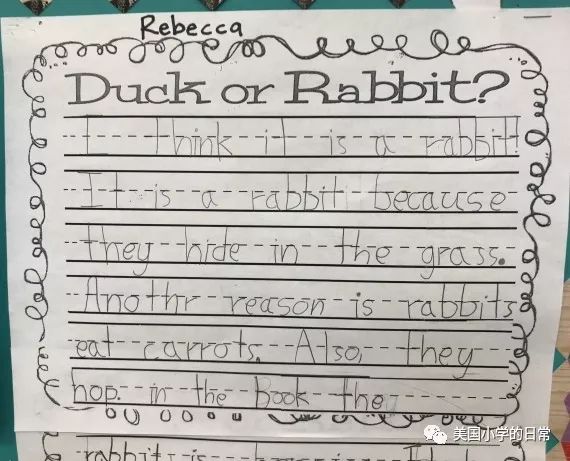 Rebecca
Duck or Rabbit?
I think it is a rabbit!
It is a rabbit because
they hide in the grass.
Anothr reason is rabbits
eat carrots. Also, they
hop. in the book the
rabbit is
美国小学的日常